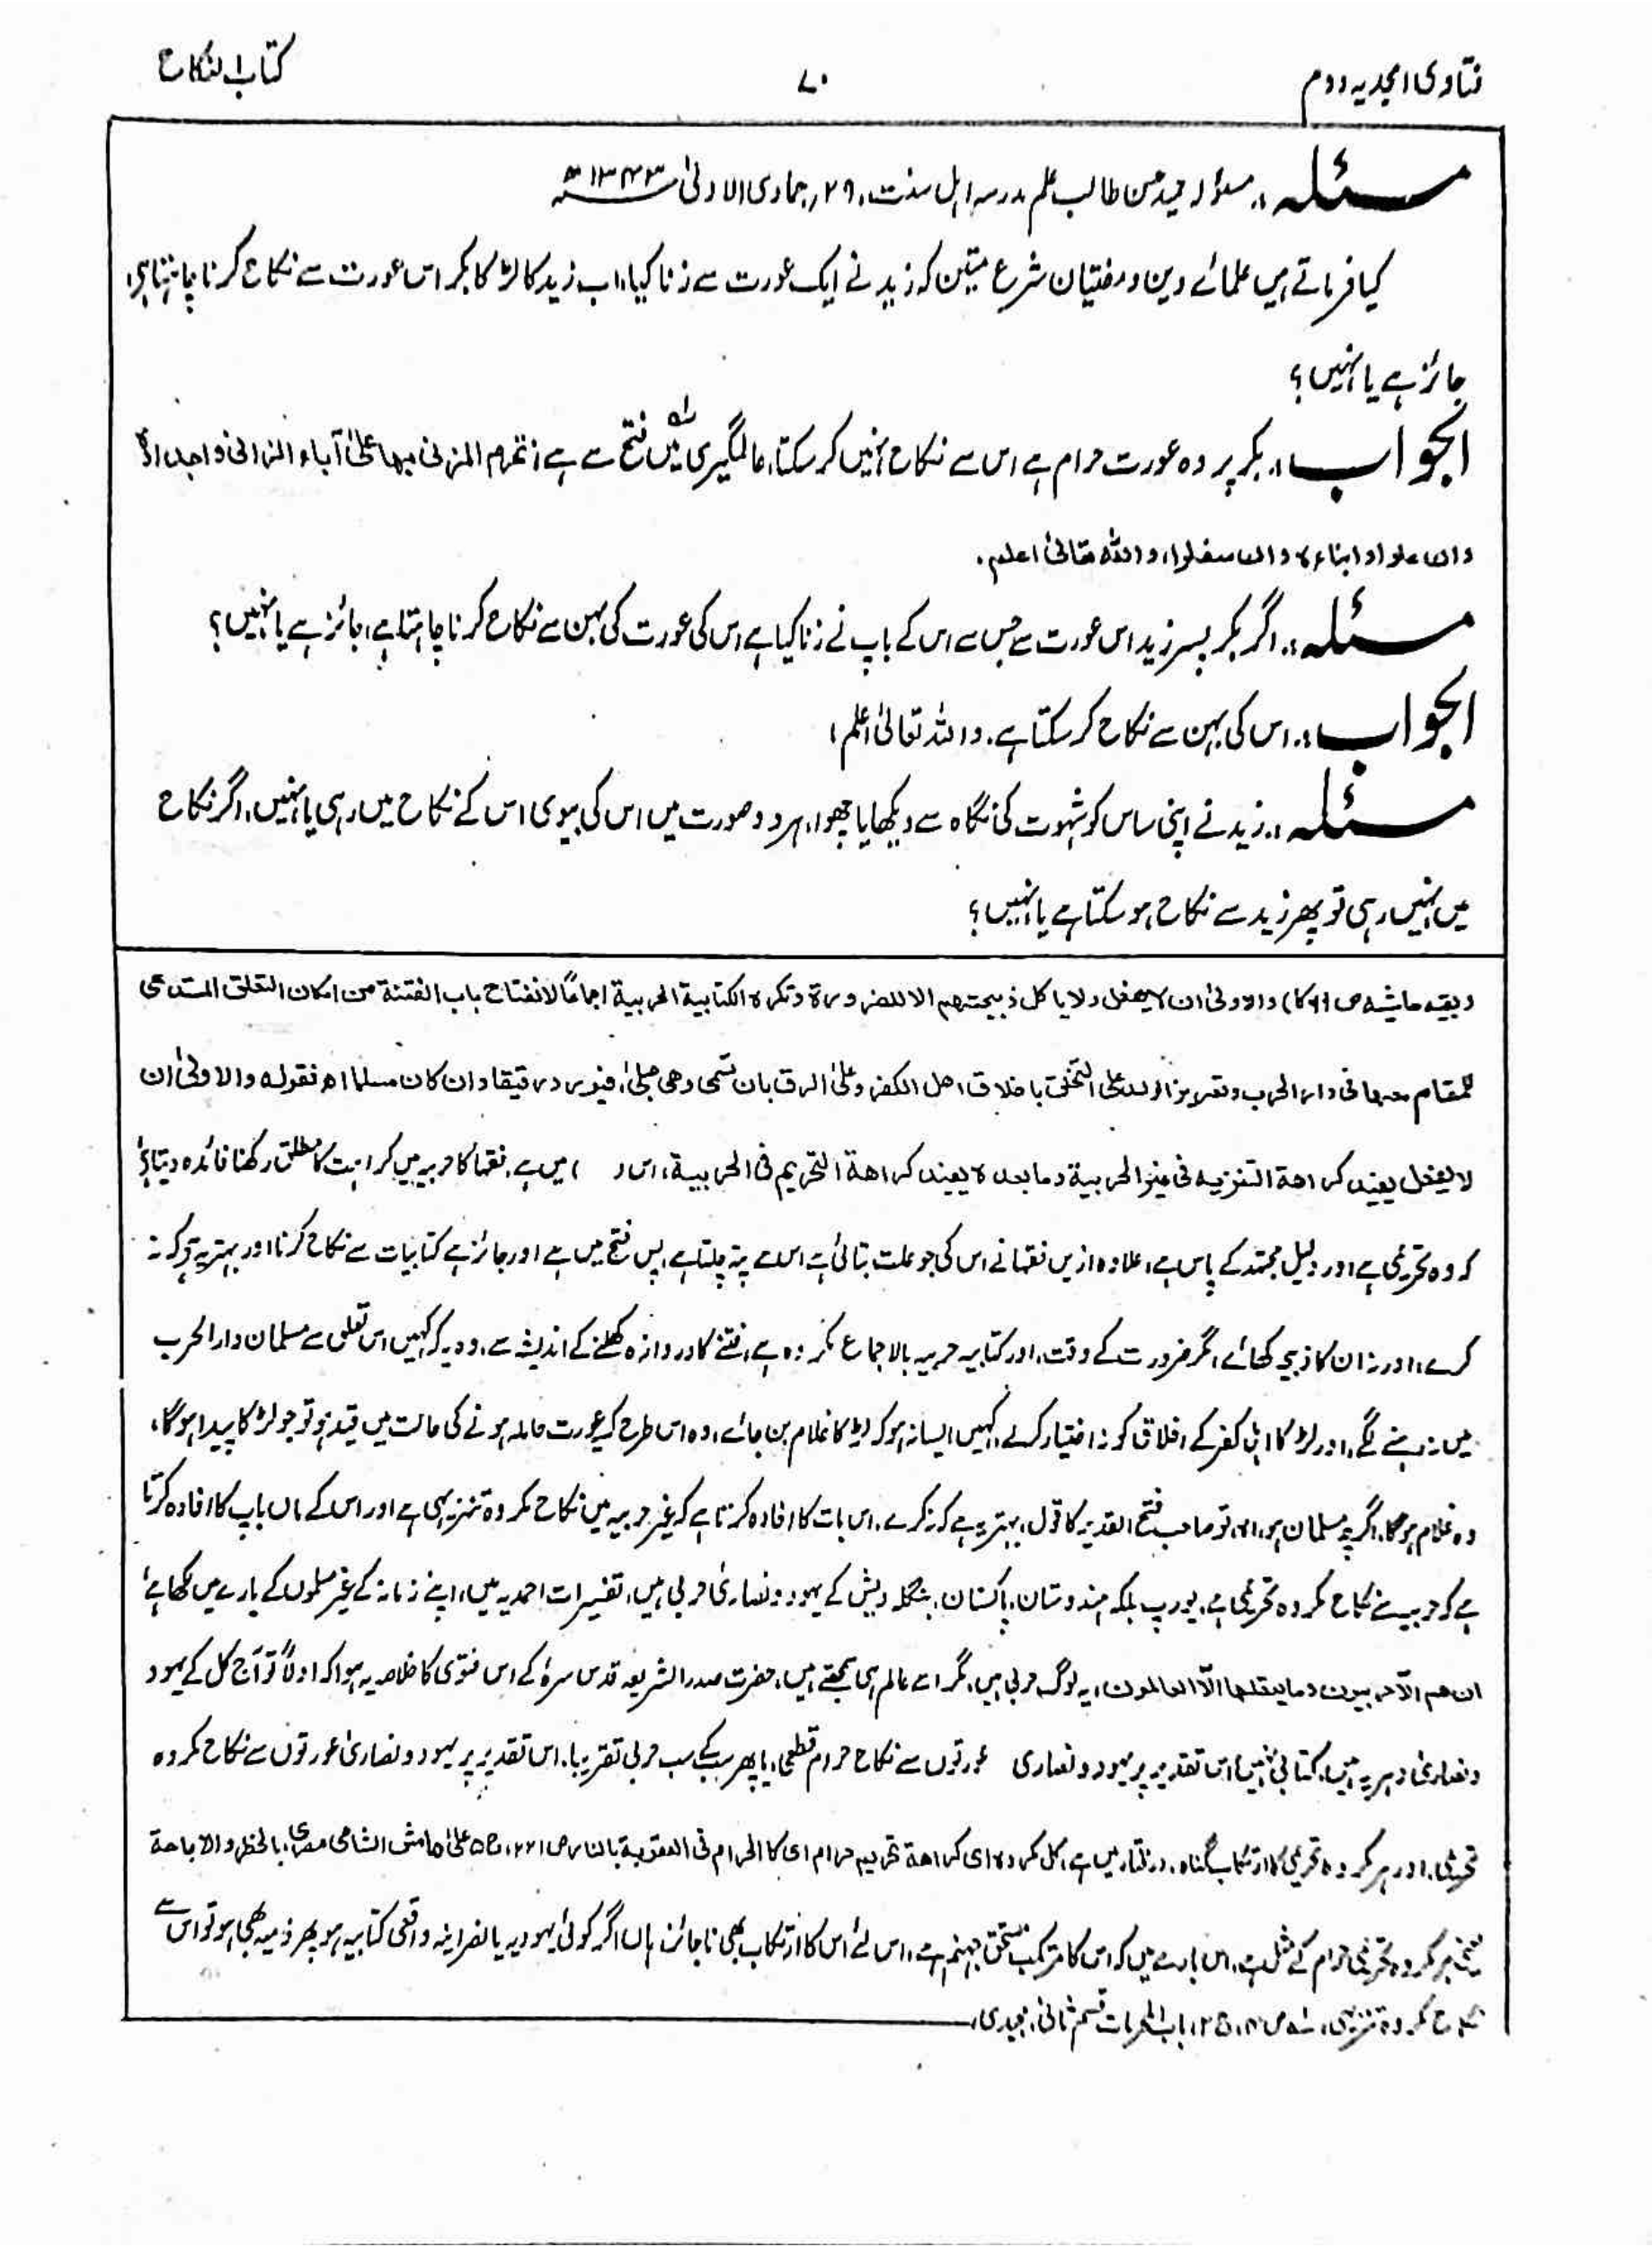 فتاوی امجدیہ دوم
۷۰
کتاب النکاح
مسئلہ:۔ مسئولہ حسن طالب علم مدرسہ اہل سنت، ۲۹؍ جمادی الاولیٰ ۱۳۴۳ھ
کیا فرماتے ہیں علمائے دین و مفتیان شرع متین کہ زید نے ایک عورت سے زنا کیا، اب زید کا لڑکا بکر اس عورت سے نکاح کرنا چاہتا ہے،
جائز ہے یا نہیں؟
الجواب:۔ بکر پر وہ عورت حرام ہے اس سے نکاح نہیں کر سکتا، عالمگیری میں فتح سے ہے: تحرم المزنی بہا علیٰ آباء الزانی و اجدادہ
وان علوا و ابناءہ وان سفلوا، واللہ تعالیٰ اعلم۔
مسئلہ:۔ اگر بکر پسر زید اس عورت سے جس سے اس کے باپ نے زنا کیا ہے اس کی عورت کی بہن سے نکاح کرنا چاہتا ہے، جائز ہے یا نہیں؟
الجواب:۔ اس کی بہن سے نکاح کر سکتا ہے۔ واللہ تعالیٰ اعلم؛
مسئلہ:۔ زید نے اپنی ساس کو شہوت کی نگاہ سے دیکھا یا چھوا، ہر دو صورت میں اس کی بیوی اس کے نکاح میں رہی یا نہیں، اگر نکاح
میں نہیں رہی تو پھر زید سے نکاح ہو سکتا ہے یا نہیں؟
(بقیہ حاشیہ ص ۶۹ کا) والاولیٰ ان لا یفعل ولا یاکل ذبیحتہم الا للضرورۃ وتکرہ الکتابیۃ الحربیۃ اجماعاً لانفتاح باب الفتنۃ من امکان التعلق المستدعی
للمقام معہا فی دار الحرب وتعریض الولد علی التخلق باخلاق اھل الکفر وعلیٰ الرق بان تسبی وھی حبلیٰ، فیولد رقیقا وان کان مسلما اھ فقولہ والاولیٰ ان
لا یفعل یفید کراھۃ التنزیہ فی غیر الحربیۃ وما بعدہ یفید کراھۃ التحریم فی الحربیۃ، اس ( ) میں ہے، فقہا کا حربیہ میں کراہت کا مطلق رکھنا فائدہ دیتا ہے
کہ وہ تحریمی ہے اور دلیل مجتہد کے پاس ہے، علاوہ ازیں فقہا نے اس کی جو علت بتائی ہے اس سے پتہ چلتا ہے، پس فتح میں ہے اور جائز ہے کتابیات سے نکاح کرنا اور بہتر یہ ہے کہ نہ
کرے، اور نہ ان کا ذبیحہ کھائے، مگر ضرورت کے وقت، اور کتابیہ حربیہ بالاجماع مکروہ ہے، فتنے کا دروازہ کھلنے کے اندیشہ سے، وہ یہ کہ کہیں اس تعلق سے مسلمان دارالحرب
میں نہ رہنے لگے، اور لڑکا اہل کفر کے اخلاق کو نہ اختیار کرلے، کہیں ایسا نہ ہو کہ لڑکا غلام بن جائے، وہ اس طرح کہ عورت حاملہ ہونے کی حالت میں قید ہو تو جو لڑکا پیدا ہوگا،
وہ غلام ہوگا، اگرچہ مسلمان ہو، اھ تو صاحب فتح القدیر کا قول، بہتر یہ ہے کہ نہ کرے، اس بات کا افادہ کرتا ہے کہ غیر حربیہ میں نکاح مکروہ تنزیہی ہے اور اس کے ماں باپ کا افادہ کرتا
ہے کہ حربیہ سے نکاح مکروہ تحریمی ہے، یورپ بلکہ ہندوستان، پاکستان، بنگلہ دیش کے یہود و نصاریٰ حربی ہیں، تفسیرات احمدیہ میں، اپنے زمانہ کے غیر مسلموں کے بارے میں لکھا ہے
ان ھم الا حربیون وما یعقلہا الّا العالمون، یہ لوگ حربی ہیں، مگر اسے عالم ہی سمجھتے ہیں، حضرت صدر الشریعہ قدس سرہٗ کے اس فتویٰ کا خلاصہ یہ ہوا کہ اولاً تو آج کل کے یہود
و نصاریٰ دہریہ ہیں، کتابی نہیں، اس تقدیر پر یہود و نصاریٰ عورتوں سے نکاح حرام قطعی، یا پھر سب کے سب حربی تقریبا، اس تقدیر پر یہود و نصاریٰ عورتوں سے نکاح مکروہ
تحریمی، اور ہر مکروہ تحریمی کا ارتکاب گناہ، درمختار میں ہے، کل مکروہ ای کراھۃ تحریم حرام ای کالحرام فی العقوبۃ بالنار ص ۲۲۱، ج ۵ علیٰ ھامش الشامی مصری، بالحظر والاباحۃ
یعنی ہر مکروہ تحریمی حرام کے مثل ہے، اس بارے میں کہ اس کا مرتکب مستحق جہنم ہے، اس لئے اس کا ارتکاب بھی ناجائز، ہاں اگر کوئی یہودیہ یا نصرانیہ واقعی کتابیہ ہو پھر ذمیہ بھی ہو تو اس سے
نکاح مکروہ تنزیہی، باب المحرمات قسم ثانی، مجیدی،